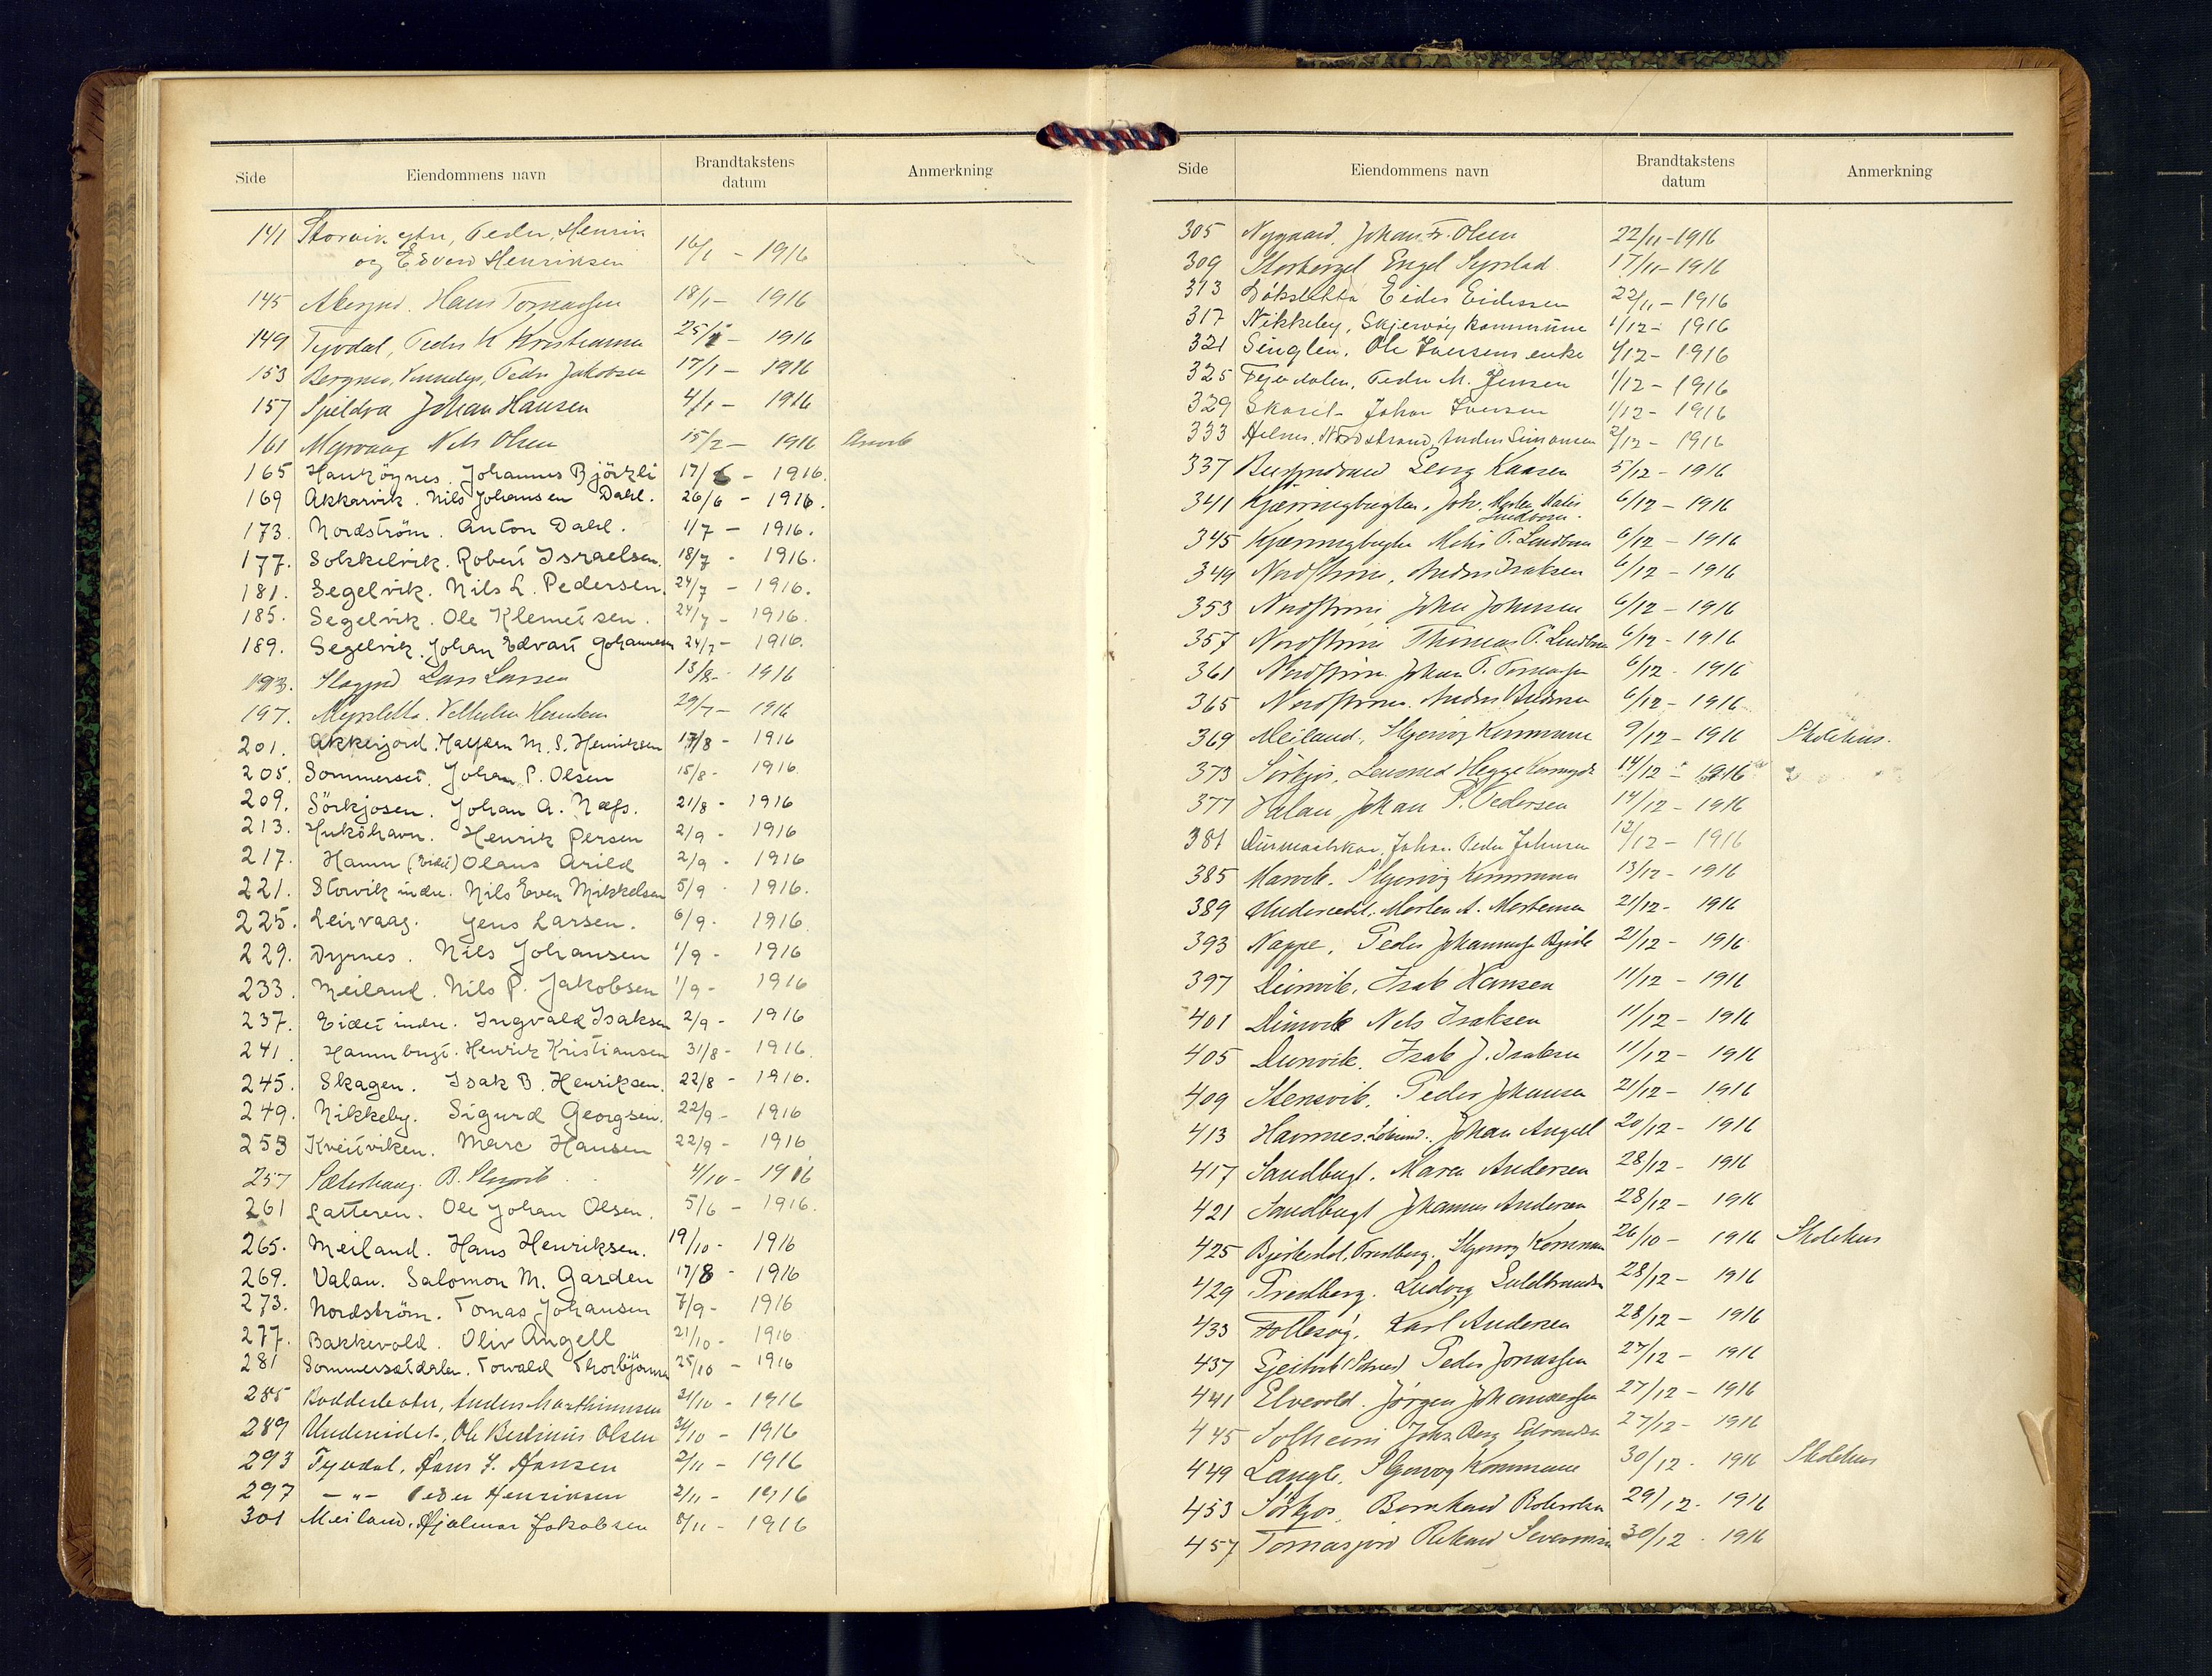 Side Eiendommens navn Brandtakstens datum Anmerkning
141 Storvik ytre, Peder, Henrik
og Edvard Henriksen 16/1 - 1916
145 Hans Tomassen 18/1 - 1916
149 Peder K Kristiansen 25/1 - 1916
153 Peder Jakobsen 17/1 - 1916
157 Spildra Johan Hansen 4/1 - 1916
161 Nils Olsen 15/2 - 1916
165 Haukøynes. Johannes Björkli 17/6 - 1916.
169 Akkarvik. Nils Johansen Dahl. 26/6 - 1916.
173. Nordström. Anton Dahl. 1/7 - 1916.
177. Sokkelvik. Robert Israelsen. 18/7 - 1916.
181. Segelvik. Nils L. Pedersen. 24/7 - 1916.
185. Segelvik. Ole Klemetsen. 24/7 - 1916.
189. Segelvik. Johan Edvart Johannesen 24/7 - 1916.
193. Lars Larsen 13/8 - 1916
197. Myrsletta. 29/7 - 1916
201. Akkerjord. Halfdan M. S. Henriksen 17/8 - 1916
205. Sommerset. Johan P. Olsen 15/8 - 1916
209. Sörkjosen. Johan A. Næss. 21/8 - 1916
213. Huköhavn. Henrik Persen 2/9 - 1916
217. Hamn (Eidet) Olaus Arild 2/9 - 1916
221. Storvik indre. Nils Even Mikkelsen 5/9 - 1916.
225. Leirvaag. Jens Larsen. 6/9 - 1916
229. Dyrnes. Nils Johansen 1/9 - 1916
233. Meiland. Nils P. Jakobsen 1/9 - 1916
237. Eidet indre. Ingvald Isaksen 2/9 - 1916
241. Hamnbugt. Henrik Kristiansen 31/8 - 1916.
245. Skagen. Isak B. Henriksen. 22/8 - 1916.
249. Nikkeby. Sigurd Georgsen. 22/9 - 1916
253 Kveitviken. Marc Hansen 22/9 - 1916
257 B. 4/10 - 1916
261 Latteren. Ole Johan Olsen. 5/6 - 1916.
265. Meiland. Hans Henriksen. 19/10 - 1916
269. Valan. Salomon M. Garden 17/8 - 1916
273. Nordström. Tomas Johansen 7/9 - 1916
277. Bakkevold. Oliv Angell 21/10 - 1916
281 Sommersetdalen. Torvald Thorbjörnsen 25/10 - 1916
285 Anders Marthinusen 21/10 - 1916
289 Undereidet, Ole Bertinius Olsen /10 - 1916
293 Tyvdal, Hans J. Hansen 2/11 - 1916
297 - " - Peder Henriksen 2/11 - 1916
301 Meiland. Hjalmar Jakobsen 8/11 - 1916
Side Eiendommens navn Brandtakstens datum Anmerkning
305 Nygaard, Johan Fr. Olsen 22/11 - 1916
309 Engel 17/11 - 1916
313 Eider Eidissen 22/11 - 1916
317 Nikkeby, Skjervøy kommune 1/12 - 1916
321 Singlen. Ole Iversens enke 1/12 - 1916
325 Peder M. Jensen 1/12 - 1916
329 Johan Iversen 1/12 - 1916
333 Nordstrand, Anders Simonsen 2/12 - 1916
337 Kaasen 5/12 - 1916
341 Kjærringbugten, Joh. Morten Matis
6/12 - 1916
345 Kjærringbugten Matis P. 6/12 - 1916
349 Nordstrøm, Anders Isaksen 6/12 - 1916
353 Nordstrøm 6/12 - 1916
357 Nordstrøm Thomas P. 6/12 - 1916
361 Nordstrøm Johan P. Tomassen 6/12 - 1916
365 Nordstrøm. 6/12 - 1916
369 Meiland, Skjervøy Kommune 9/12 - 1916 Skolehus.
373 Sörkjos, Lensmed Hegge 14/12 - 1916
377 Valan Johan P. Pedersen 14/12 - 1916
381 Johan Peder Johnsen 12/12 - 1916
385 Skjervøy Kommune 13/12 - 1916
389 Undereidet. Morten A. Mortensen 21/12 - 1916
393 Nappe. Peder 21/12 - 1916
397 Isak Hansen 11/12 - 1916
401 Nils Isaksen 11/12 - 1916
405 Isak J. Isaksen 11/12 - 1916
409 Stensvik. Peder Johansen 21/12 - 1916
413 Havnnes. Johan Angell 20/12 - 1916
417 Sandbugt. Maren Andersen 28/12 - 1916
421 Sandbugt Johannes Andersen 28/12 - 1916
425 Skjervøy Kommune 26/10 - 1916 Skolehus
429 Ludvig 28/12 - 1916
433 Follesøy. Karl Andersen 28/12 - 1916
437 Peder Jonassen 27/12 - 1916
441 Elvevold. Jørgen Johannessen 27/12 - 1916
445 Solheim Johs. Berg 27/12 - 1916
449 Skjervøy Kommune 30/12 - 1916 Skolehus
453 Sörkjos. 29/12 - 1916
457 Tomasjord 30/12 - 1916